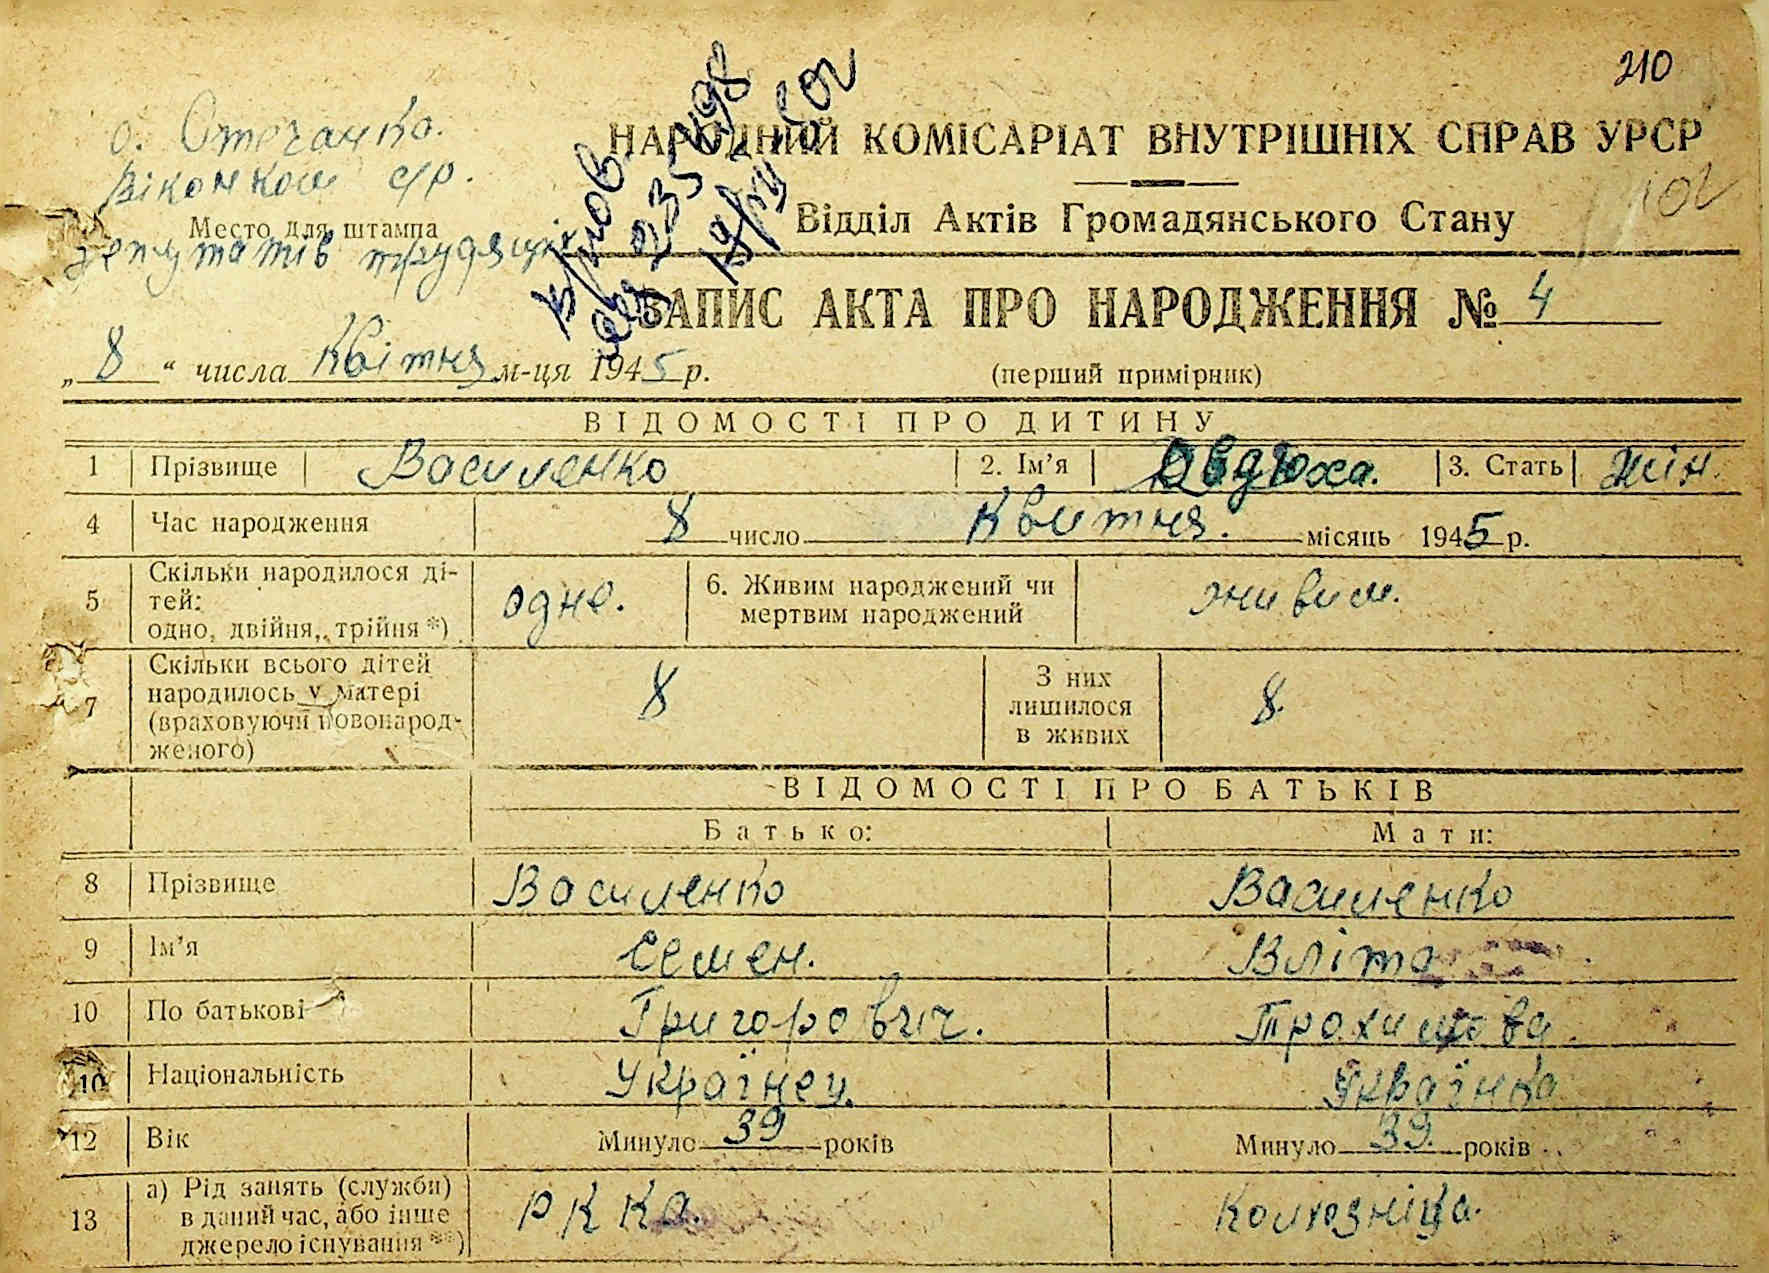 210
с. Степанко.
Виконком с/р.
Место для штампа
депутатів трудящих
НАРОДНИЙ КОМІСАРІАТ ВНУТРІШНІХ СПРАВ УРСР
Відділ Актів Громадянського Стану
102
ЗАПИС АКТА ПРО НАРОДЖЕННЯ № 4
„ 8 “ числа Квітня м-ця 1945 р.
(перший примірник)
ВІДОМОСТІ ПРО ДИТИНУ
1 Прізвище Василенко 2. Ім’я Овдюха. 3. Стать жін.
4 Час народження 8 число Квитня. місяць 1945 р.
5 Скільки народилося ді-
тей:
одно, двійня, трійня *) одне. 6. Живим народжений чи
мертвим народжений живим.
7 Скільки всього дітей
народилось у матері
(враховуючи новонарод-
женого) 8 З них
лишилося
в живих 8.
ВІДОМОСТІ ПРО БАТЬКІВ
Батько: Мати:
8 Прізвище Василенко Василенко
9 Ім’я Семен. Вліта
10 По батькові Григорович. Трохимовa.
10 Національність Українец. Українка
12 Вік Минуло 39 років Минуло 39. років
13 а) Рід занять (служби)
в даний час, або інше
джерело існування **) РККа. Колхозніца.